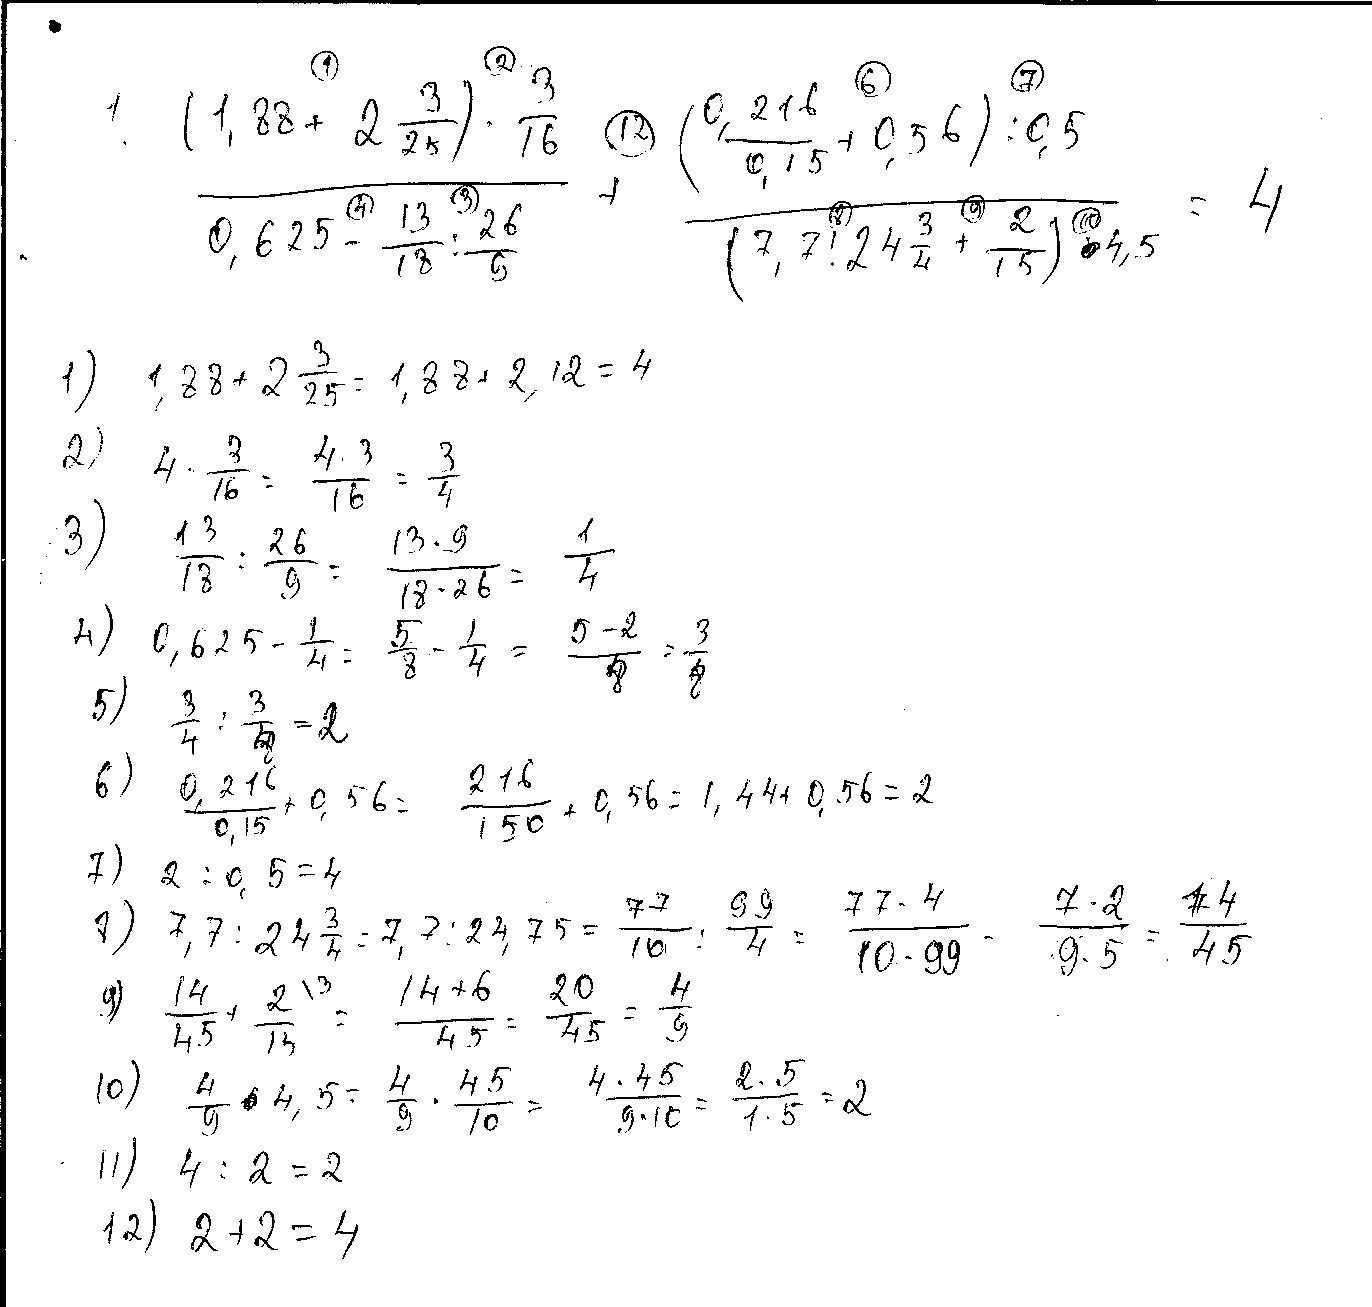 1. ((1,88 + 2 3/25) · 3/16) / (0,625 - 13/18 : 26/9) + ((0,216/0,15 + 0,56) : 0,5) / ((7,7 : 24 3/4 + 2/15) · 4,5) = 4
1) 1,88 + 2 3/25 = 1,88 + 2,12 = 4
2) 4 · 3/16 = 4·3/16 = 3/4
3) 13/18 : 26/9 = 13·9/18·26 = 1/4
4) 0,625 - 1/4 = 5/8 - 1/4 = 5-2/8 = 3/8
5) 3/4 : 3/8 = 2
6) 0,216/0,15 + 0,56 = 216/150 + 0,56 = 1,44 + 0,56 = 2
7) 2 : 0,5 = 4
8) 7,7 : 24 3/4 = 7,7 : 24,75 = 77/10 : 99/4 = 77·4/10·99 - 7·2/9·5 = 14/45
9) 14/45 + 2/15 \3 = 14+6/45 = 20/45 = 4/9
10) 4/9 · 4,5 = 4/9 · 45/10 = 4·45/9·10 = 2·5/1·5 = 2
11) 4 : 2 = 2
12) 2 + 2 = 4